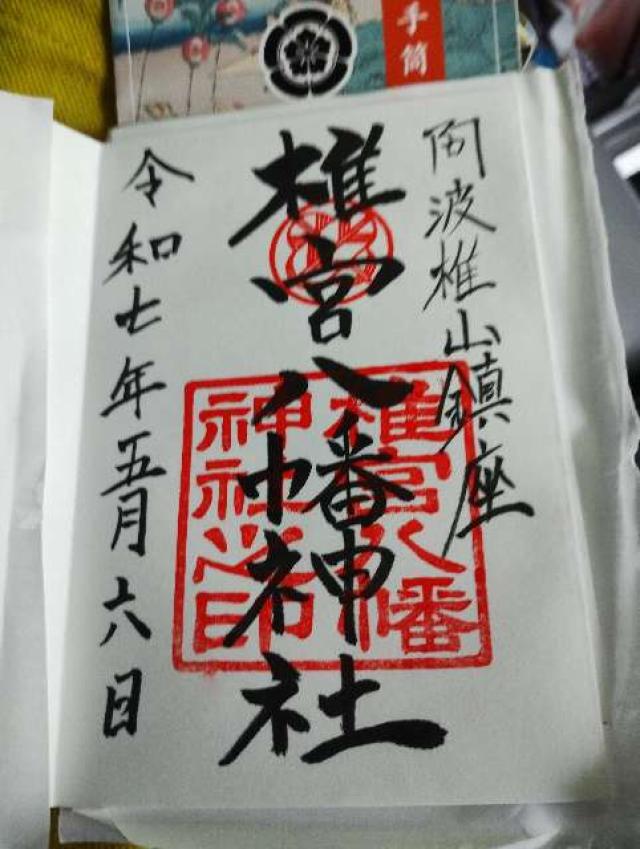 手筒
阿波椎山鎮座
椎宮八幡神社
令和七年五月六日
椎宮八幡
神社之印